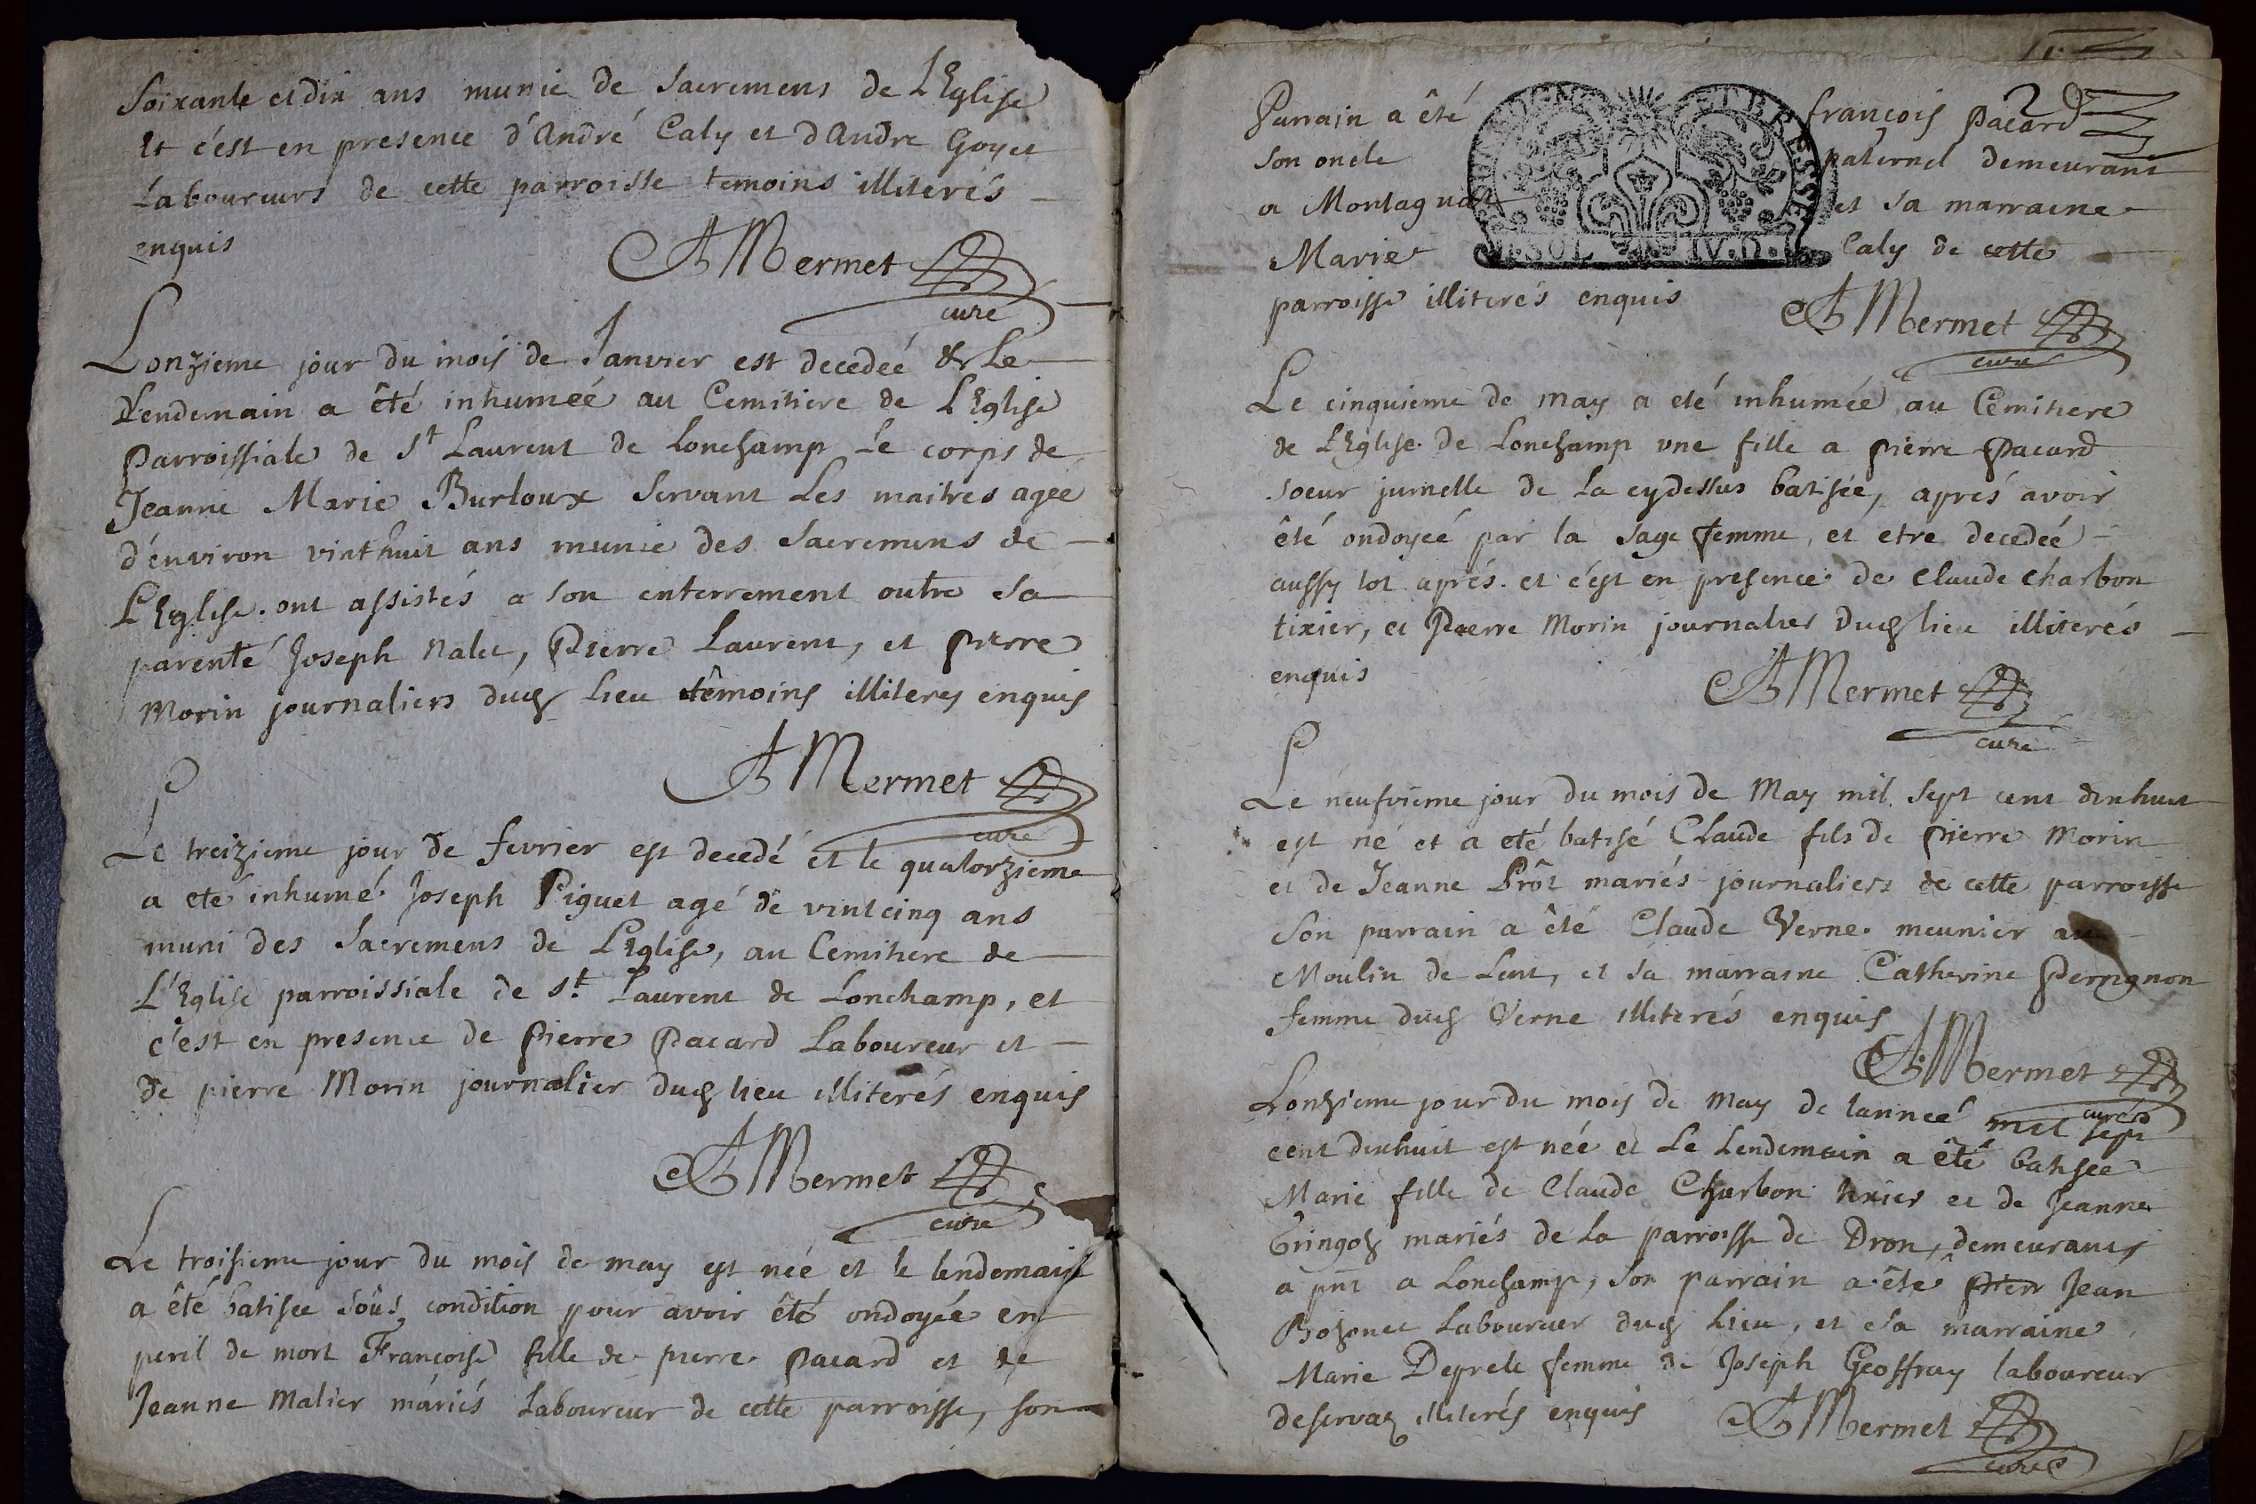 Soixante et dix ans munie de Sacremens de L'Eglise
Et c'est en presence d'André Caly et d'Andre Goyet
Laboureurs de cette parroisse temoins illiterés
enquis
Mermet
curé
Lonzieme jour du mois de Janvier est decedeé & Le
Lendemain a êté inhumeé au Cemitiere de L'Eglise
Parroissiale de St Laurent de Lonchamp Le corps de
Jeanne Marie Burloux Servant Les maitres ageé
d'environ vinthuit ans munie des Sacremens de
L'Eglise. ont assistés a son enterrement outre sa
parenté Joseph Nalet, Pierre Laurent, et pierre
Morin journaliers dud lieu têmoins illiteres enquis
Mermet
curé
Le treizieme jour de fevrier est decedé et le quatorzieme
a eté inhumé Joseph Piguet agé de vintcinq ans
muni des Sacremens de L'Eglise, au Cemitiere de
L'Eglise parroissiale de St. Laurent de Lonchamp, et
c'est en presence de pierre Pacard Laboureur et
de pierre Morin journalier dud lieu illiterés enquis
Mermet
curé
Le troisieme jour du mois de may est neé et le lendemain
a êté batisee sous condition pour avoir êté ondoyée en
peril de mort Françoise fille de pierre pacard et de
Jeanne Malier mariés Laboureur de cette parroisse, son
2
Parrain a êté françois pacard
son oncle paternel demeurant
a Montagnat et sa marraine
Marie Caly de cette
BRESSE
SOL IV.D.
parroisse illiterés enquis
Mermet
curé
Le cinquieme de may a eté inhumée au Cemitiere
de L'Eglise de Lonchamp une fille a pierre Pacard
soeur jumelle de La cydessus batisée, aprés avoir
êté ondoyeé par la sage femme, et etre decedeé
aussy tot aprés. et c'est en presence de Claude Charbon
tixier, et Pierre Morin journalier dud lieu illiterés
enquis
Mermet
curé
Le neufvieme jour du mois de May mil sept cent dixhuit
est né et a eté batisé Claude fils de pierre Morin
et de Jeanne Prôt mariés journaliers de cette parroisse
Son parrain a êté Claude Verne meunier au
Moulin de Lent, et sa marraine Catherine Perrignon
femme dud Verne illiterés enquis
Mermet
curé
Lonzieme jour du mois de May de l'anneé mil sept
cent dixhuit est née et Le Lendemain a êté batisée
Marie fille de Claude Charbon tixier et de Jeanne
mariés de La parroisse de Dron, demeurants
a pnt a Lonchamp, son parrain a êté Jean
Laboureur dud lieu, et sa marraine
Marie Deprele femme de Joseph Geoffray laboureur
deservaz illiterés enquis
Mermet
curé